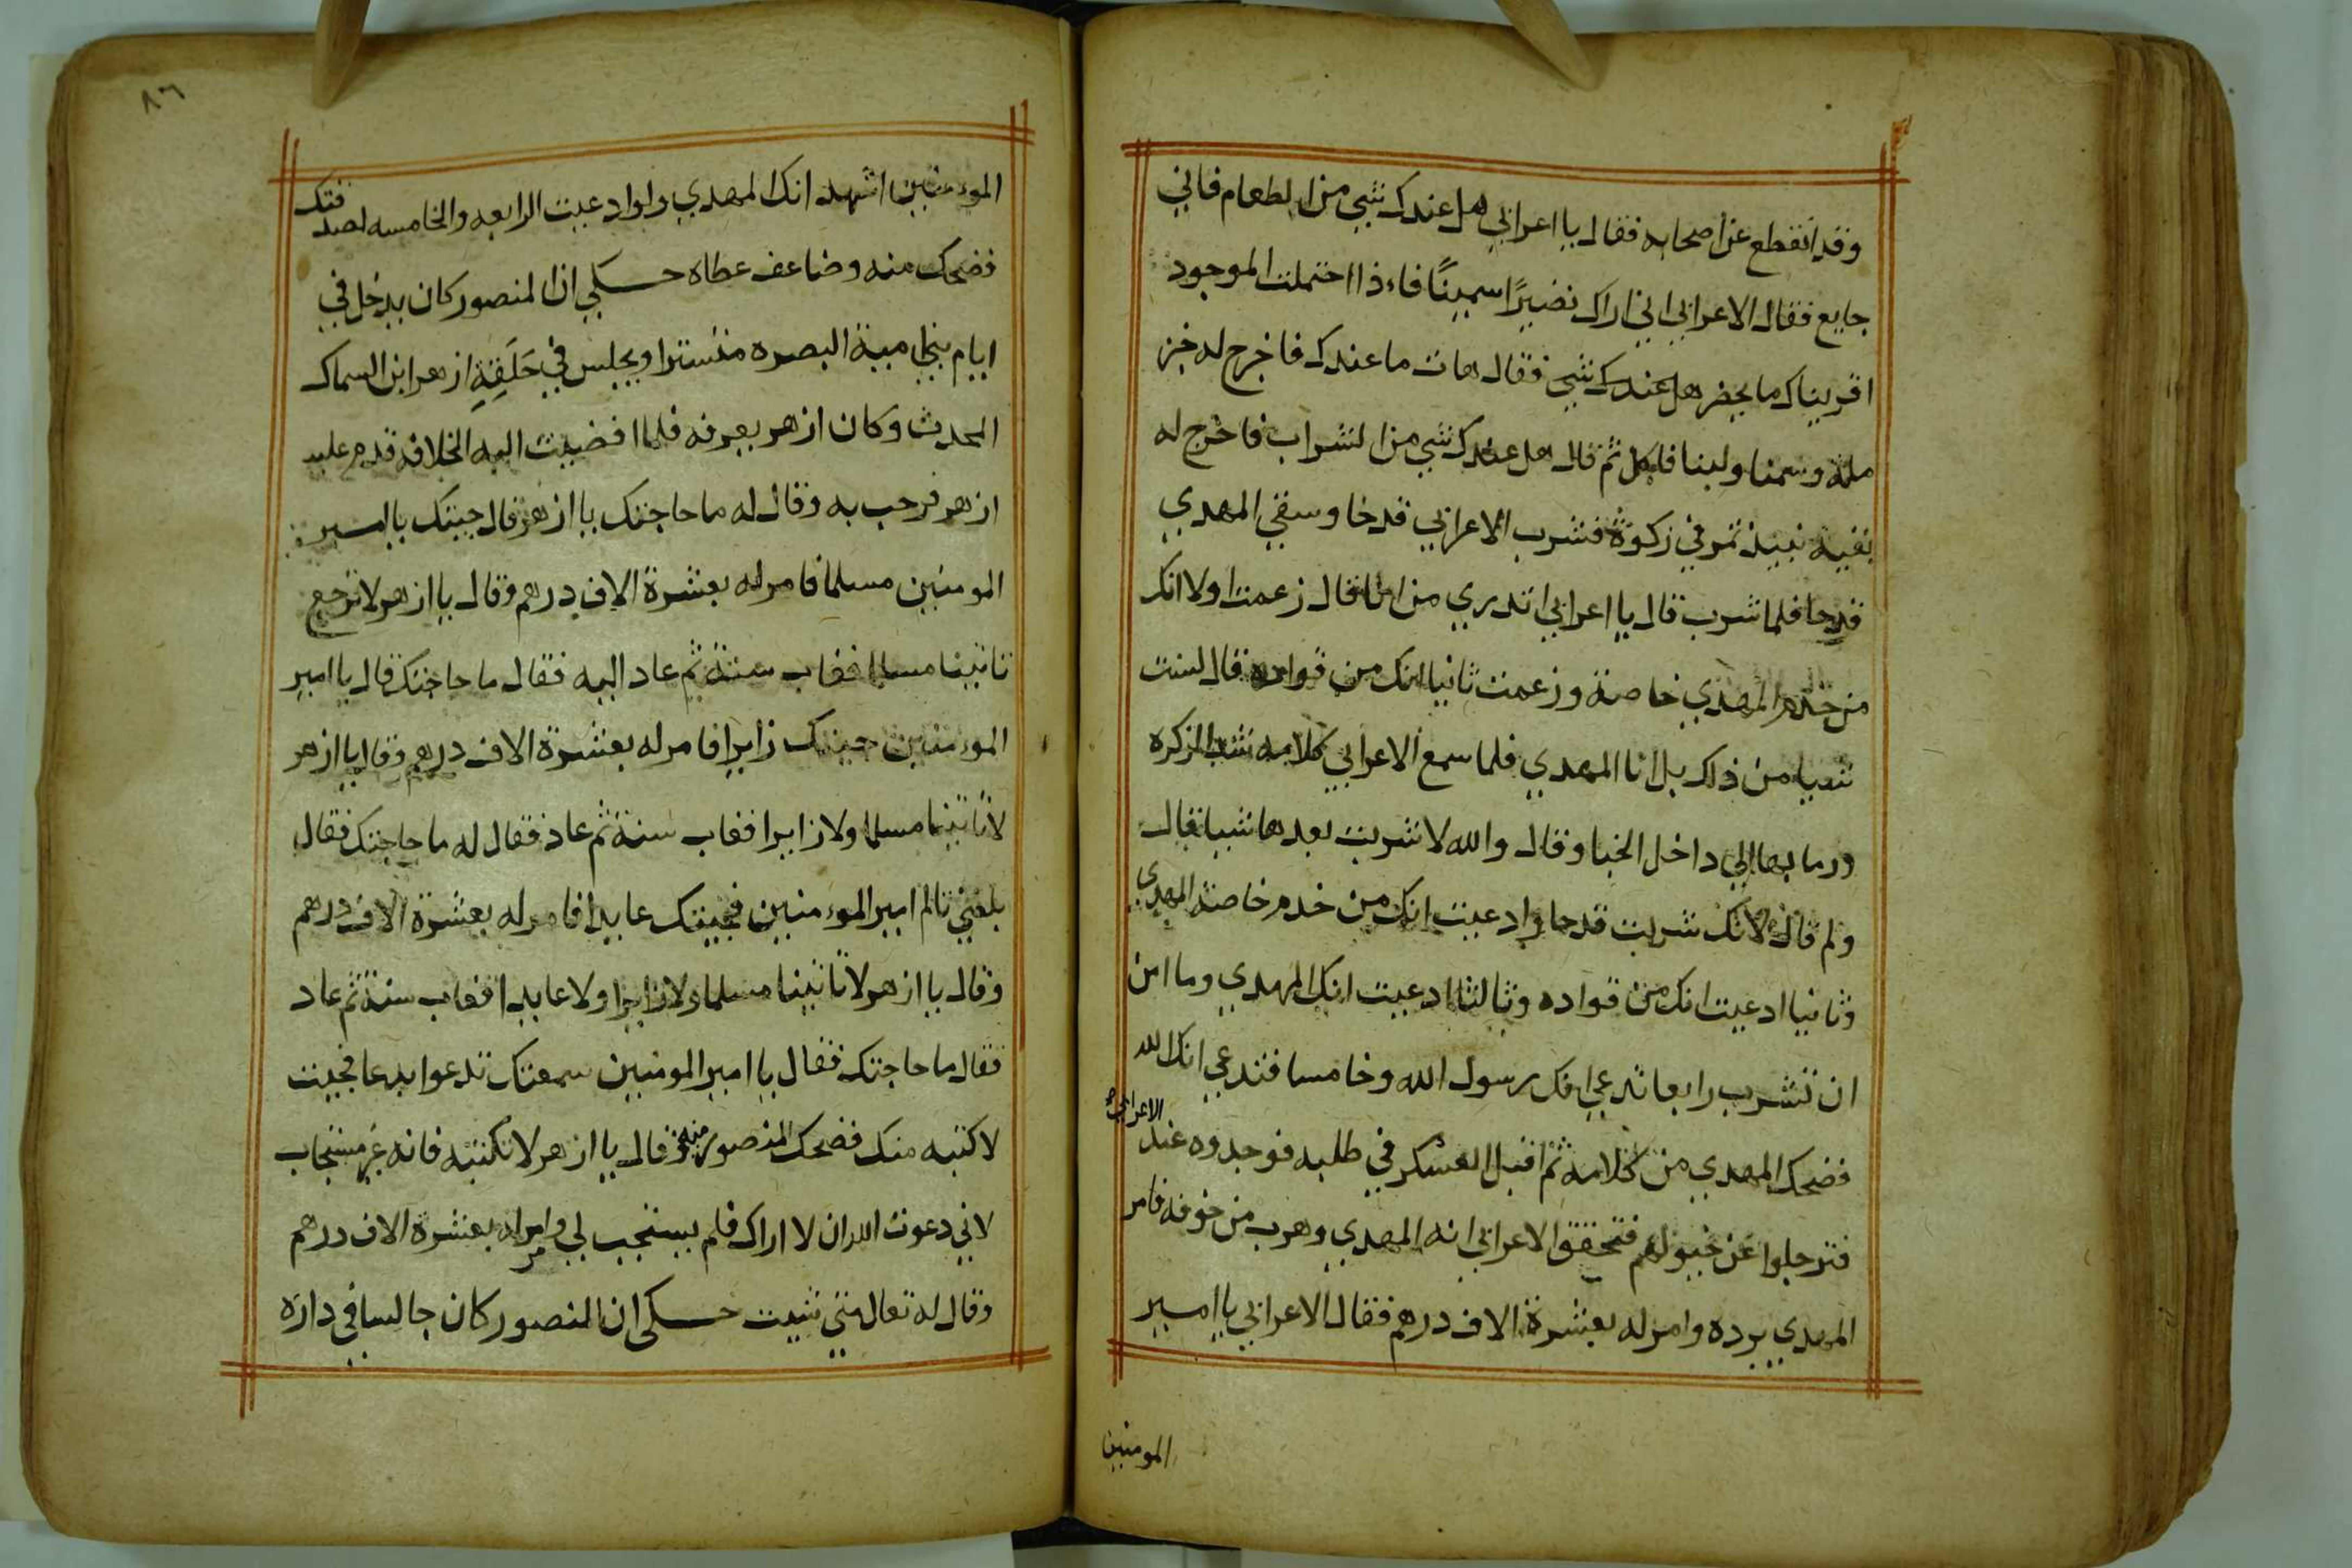 وقد انقطع عن اصحابه فقال يا اعرابي هل عندك شي من الطعام فاني
جايع فقال الاعرابي اني اراك نضيرًا سمينًا فاءذا احتملت الموجود
اقريناك ما يحضر هل عندك شي فقال هات ما عندك فاخرج له خبز
ملة وسمنا ولبنا فاكل ثم قال هل عندك شي من الشراب فاخرج له
بقية نبيذ تمر في زكوة فشرب الاعرابي قدحا وسقي المهدي
قدحا فلما شرب قال يا اعرابي اتدري من انا قال زعمت اولا انك
من خدم المهدي خاصة وزعمت ثانيا انك من قواده قال لست
شيا من ذلك بل انا المهدي فلما سمع الاعرابي كلامه شد الزكره
ورما بها الي داخل الخبا وقال والله لا شربت بعدها شيا فقال
ولم قال لانك شربت قدحا وادعيت انك من خدم خاصة المهدي
وثانيا ادعيت انك من قواده وثالثا ادعيت انك المهدي وما امن
ان تشرب رابعا تدعي انك رسول الله وخامسا فتدعي انك الله
فضحك المهدي من كلامه ثم اقبل العسكر في طلبه فوجدوه عند الاعرابي
فترجلوا عن خيولهم فتحقق الاعرابي انه المهدي وهرب من خوفه فامر
المهدي برده وامر له بعشرة الاف درهم فقال الاعرابي يا امير
المومنين
٨٦
الموءمنين اشهد انك المهدي ولو ادعيت الرابعه والخامسه لصدقتك
فضحك منه وضاعف عطاه حكي ان المنصور كان يدخل في
ايام بني امية البصره متسترا ويجلس في حَلَقِةِ ازهر ابن السماك
المحدث وكان ازهر يعرفه فلما افضيت اليه الخلافه قدم عليه
ازهر فرحب به وقال له ما حاجتك يا ازهر قال جيتك يا امير
المومنين مسلما فامر له بعشرة الاف درهم وقال يا ازهر لا ترجع
تاتينا مسلما فغاب سنة ثم عاد اليه فقال ما حاجتك قال يا امير
الموءمنين جيتك زايرا فامر له بعشرة الاف درهم وقال يا ازهر
لا تاتينا مسلما ولا زايرا فغاب سنة ثم عاد فقال له ما حاجتك فقال
بلغني تالم امير الموءمنين فجيتك عايدا فامر له بعشرة الاف درهم
وقال يا ازهر لا تاتينا مسلما ولا زايرا ولا عايدا فغاب سنة ثم عاد
فقال ما حاجتك فقال يا امير المومنين سمعتك تدعوا بدعا فجيت
لاكتبه منك فضحك المنصور منه وقال يا ازهر لا تكتبه فانه غير مستجاب
لاني دعوت الله ان لا اراك فلم يستجب لي وامر له بعشرة الاف درهم
وقال له تعال متي شيت حكى ان المنصور كان جالسا في داره